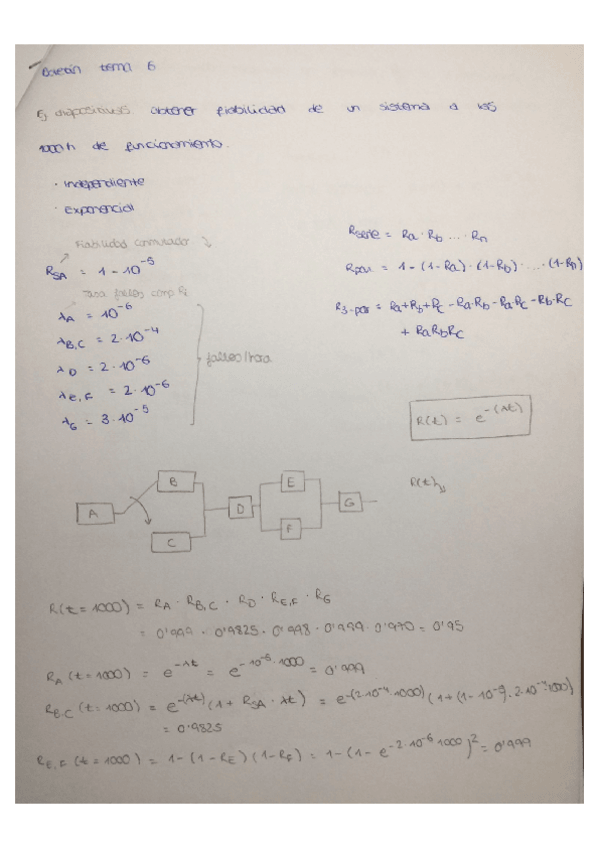 Boletín tema 6
Ej diapositivas obtener fiabilidad de un sistema a las
1000h de funcionamiento.
· independiente
· exponencial
Fiabilidad conmutador
R_SA = 1 - 10^-5
Tasa fallos comp.
λ_A = 10^-6
λ_B,C = 2·10^-4
λ_D = 2·10^-6
λ_E,F = 2·10^-6
λ_G = 3·10^-5
fallos/hora
R_serie = Ra·Rb ... Rn
R_par = 1-(1-Ra)·(1-Rb)· ... ·(1-Rn)
R_3-par = Ra+Rb+Rc-Ra·Rb-Ra·Rc-Rb·Rc
+ RaRbRc
R(t) = e^-(λt)
R(t)
A B C D E F G
R(t=1000) = R_A · R_B,C · R_D · R_E,F · R_G
= 0'999 · 0'9825 · 0'998 · 0'999 · 0'970 = 0'95
R_A (t=1000) = e^-λt = e^-10^-6·1000 = 0'999
R_B,C (t=1000) = e^-(λt) (1 + R_SA · λt) = e^-(2·10^-4·1000) (1+(1-10^-5)·2·10^-4·1000)
= 0'9825
R_E,F (t=1000) = 1-(1-R_E)(1-R_F) = 1-(1-e^-2·10^-6·1000)^2 = 0'999